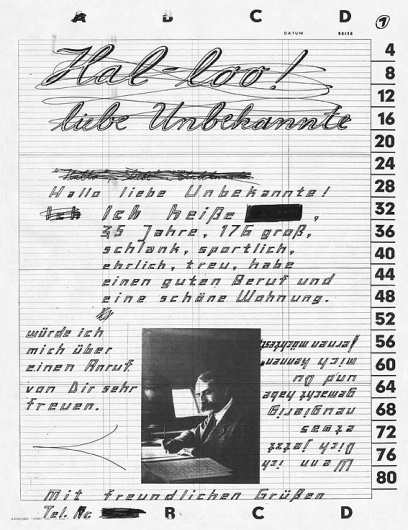 A B C D 1
DATUM SEITE
Hal-loo!
liebe Unbekannte
Hallo liebe Unbekannte!
Ich heiße ,
35 Jahre, 176 groß,
schlank, sportlich,
ehrlich, treu, habe
einen guten Beruf und
eine schöne Wohnung.
Wenn ich
Dich jetzt
etwas
neugierig
gemacht habe
und Du
mich kennen-
lernen möchtest,
würde ich
mich über
einen Anruf
von Dir sehr
freuen.
Mit freundlichen Grüßen
Tel. Nr.
A B C D
4
8
12
16
20
24
28
32
36
40
44
48
52
56
60
64
68
72
76
80